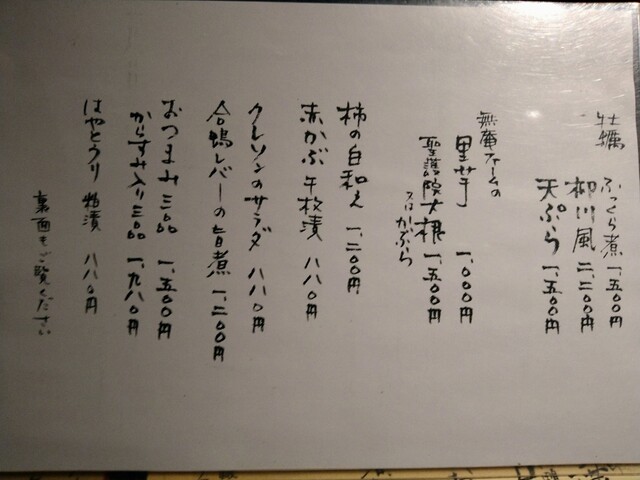 牡蠣
ふっくら煮 一、五〇〇円
柳川風 二、二〇〇円
天ぷら 一、五〇〇円
無庵ファームの
里芋 一、〇〇〇円
聖護院大根 一、五〇〇円
又はかぶら
柿の白和え 一、二〇〇円
赤かぶ千枚漬 八八〇円
クレソンのサラダ 八八〇円
合鴨レバーの旨煮 一、二〇〇円
おつまみ三品 一、五〇〇円
からすみ入り三品 一、九八〇円
はやとウリ 粕漬 八八〇円
裏面もご覧ください